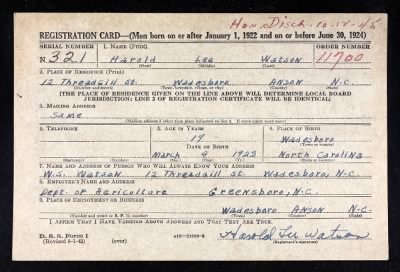 Hon. Disch. 10-12-45
REGISTRATION CARD—(Men born on or after January 1, 1922 and on or before June 30, 1924)
SERIAL NUMBER 1. NAME (Print) ORDER NUMBER
N 321 Harold Lee Watson 11700
(First) (Middle) (Last)
2. PLACE OF RESIDENCE (Print)
12 Threadgill St. Wadesboro Anson N.C.
(Number and street) (Town, township, village, or city) (County) (State)
[THE PLACE OF RESIDENCE GIVEN ON THE LINE ABOVE WILL DETERMINE LOCAL BOARD
JURISDICTION; LINE 2 OF REGISTRATION CERTIFICATE WILL BE IDENTICAL]
3. MAILING ADDRESS
Same
[Mailing address if other than place indicated on line 2. If same insert word same]
4. TELEPHONE 5. AGE IN YEARS 6. PLACE OF BIRTH
19 Wadesboro
DATE OF BIRTH (Town or county)
March 9 1923 North Carolina
(Exchange) (Number) (Mo.) (Day) (Yr.) (State or country)
7. NAME AND ADDRESS OF PERSON WHO WILL ALWAYS KNOW YOUR ADDRESS
W.S. Watson 12 Threadgill St. Wadesboro, N.C.
8. EMPLOYER'S NAME AND ADDRESS
Dept. of Agriculture Greensboro, N.C.
9. PLACE OF EMPLOYMENT OR BUSINESS
Wadesboro Anson N.C.
(Number and street or R. F. D. number) (Town) (County) (State)
I AFFIRM THAT I HAVE VERIFIED ABOVE ANSWERS AND THAT THEY ARE TRUE.
D. S. S. Form 1
(Revised 6-1-42) (over) Harold Lee Watson
(Registrant's signature)